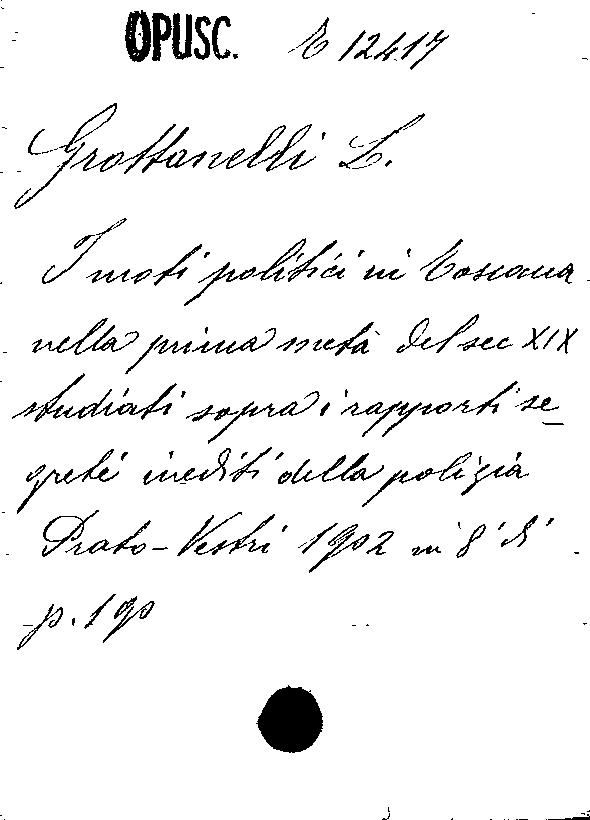 OPUSC. E 12417
Grottanelli L.
I moti politici in Toscana
nella prima metà del sec XIX
studiati sopra i rapporti se_
greti inediti della polizia
Prato - Vestri 1902 in 8° di
p. 190